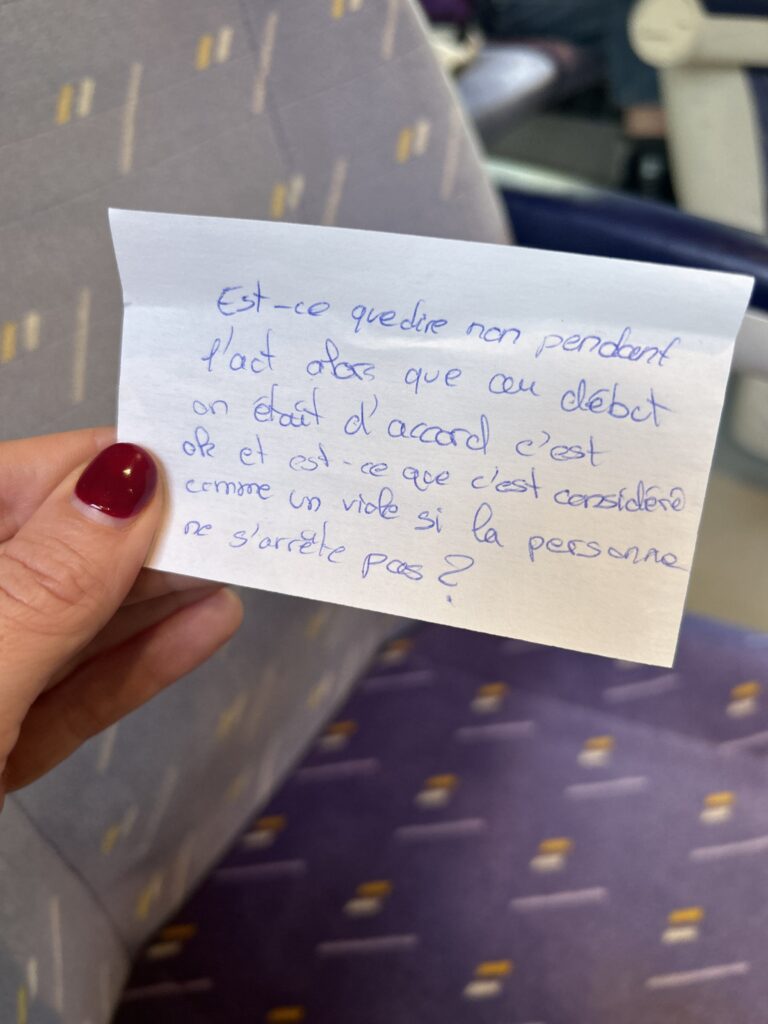 Est-ce que dire non pendant
l'act alors que au début
on était d'accord c'est
ok et est-ce que c'est considéré
comme un viole si la personne
ne s'arrête pas ?